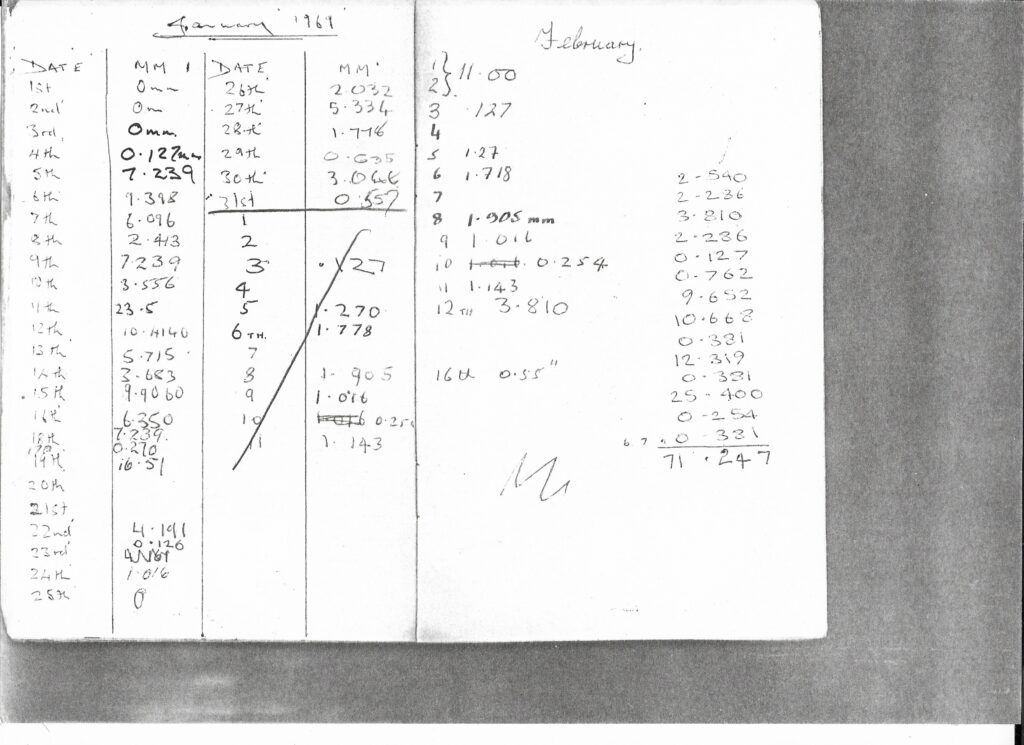 January 1969
DATE MM DATE MM
1st 0mm 26th 2.032
2nd 0m 27th 5.334
3rd 0mm. 28th 1.776
4th 0.127mm 29th 0.635
5th 7.239 30th 3.048
6th 9.398 31st 0.557
7th 6.096 1
8th 2.413 2
9th 7.239 3 .127
10th 3.556 4
11th 23.5 5 1.270
12th 10.4140 6TH. 1.778
13th 5.715 7
14th 3.683 8 1.905
15th 9.9060 9 1.016
16th 6.350 10 1.016 0.254
7.239
18th 0.270 11 1.143
19th 16.51
20th
21st
22nd 4.191
0.126
23rd
24th 1.016
25th 0
February.
1
2 } 11.00
3 .127
4
5 1.27
6 1.718
7
8 1.905mm
9 1.016
10 1.016 0.254
11 1.143
12TH 3.810
16th 0.55"
2-540
2-236
3.810
2-236
0-127
0.762
9-652
10.668
0-331
12.319
0-331
25-400
0-254
6.7 .0-331
71.247